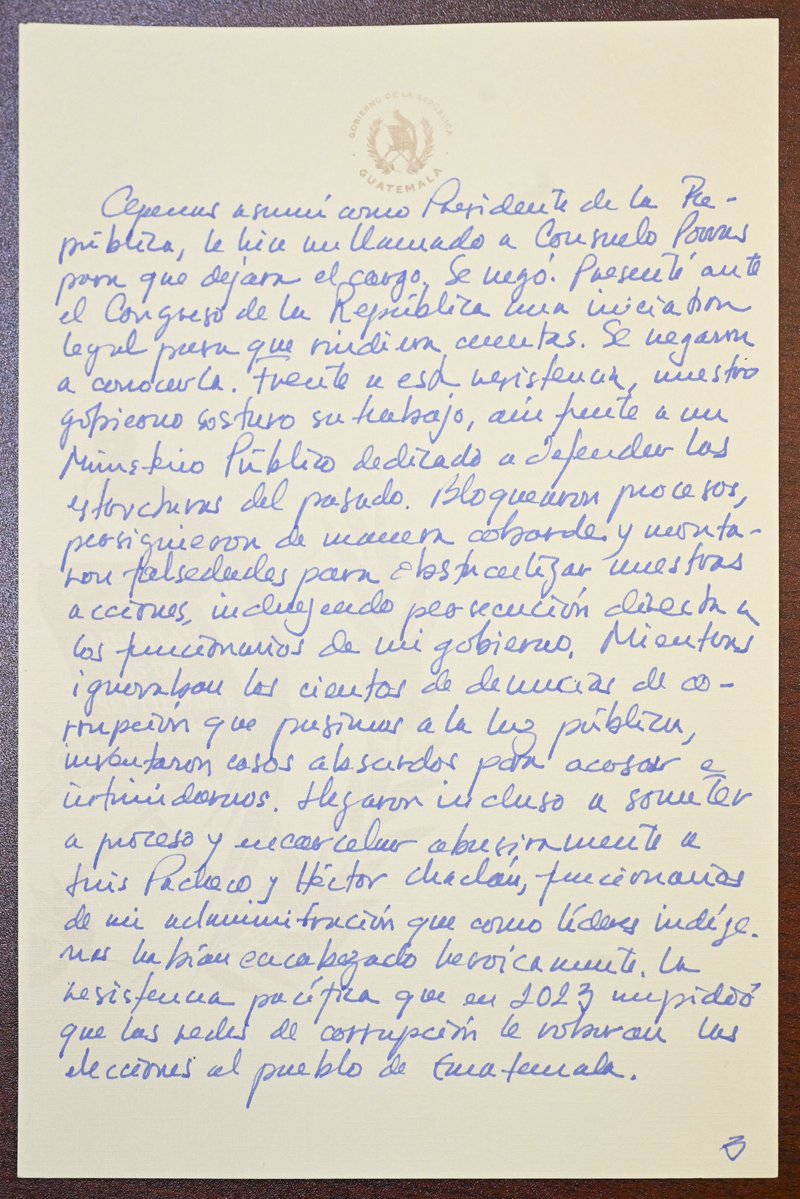 GOBIERNO DE LA REPÚBLICA
GUATEMALA
Apenas asumí como Presidente de la Re-
pública, le hice un llamado a Consuelo Porras
para que dejara el cargo. Se negó. Presenté ante
el Congreso de la República una iniciativa
legal para que rindiera cuentas. Se negaron
a conocerla. Frente a esa resistencia, nuestro
gobierno sostuvo su trabajo, aún frente a un
Ministerio Público dedicado a defender las
estructuras del pasado. Bloquearon procesos,
persiguieron de manera cobarde y monta-
ron falsedades para obstaculizar nuestras
acciones, incluyendo persecución directa a
los funcionarios de mi gobierno. Mientras
ignoraban los cientos de denuncias de co-
rrupción que pusimos a la luz pública,
inventaron casos absurdos para acosar e
intimidarnos. Llegaron incluso a someter
a proceso y encarcelar abusivamente a
Luis Pacheco y Héctor Chaclán, funcionarios
de mi administración que como líderes indíge-
nas habían encabezado heroicamente la
resistencia pacífica que en 2023 impidió
que las redes de corrupción le robaran las
elecciones al pueblo de Guatemala.
3